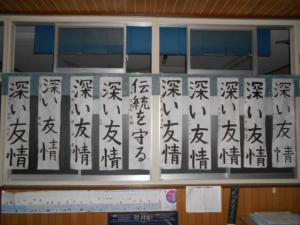 深い友情
深い友情
深い友情
深い友情
深い友情
伝統を守る
深い友情
深い友情
深い友情
深い友情